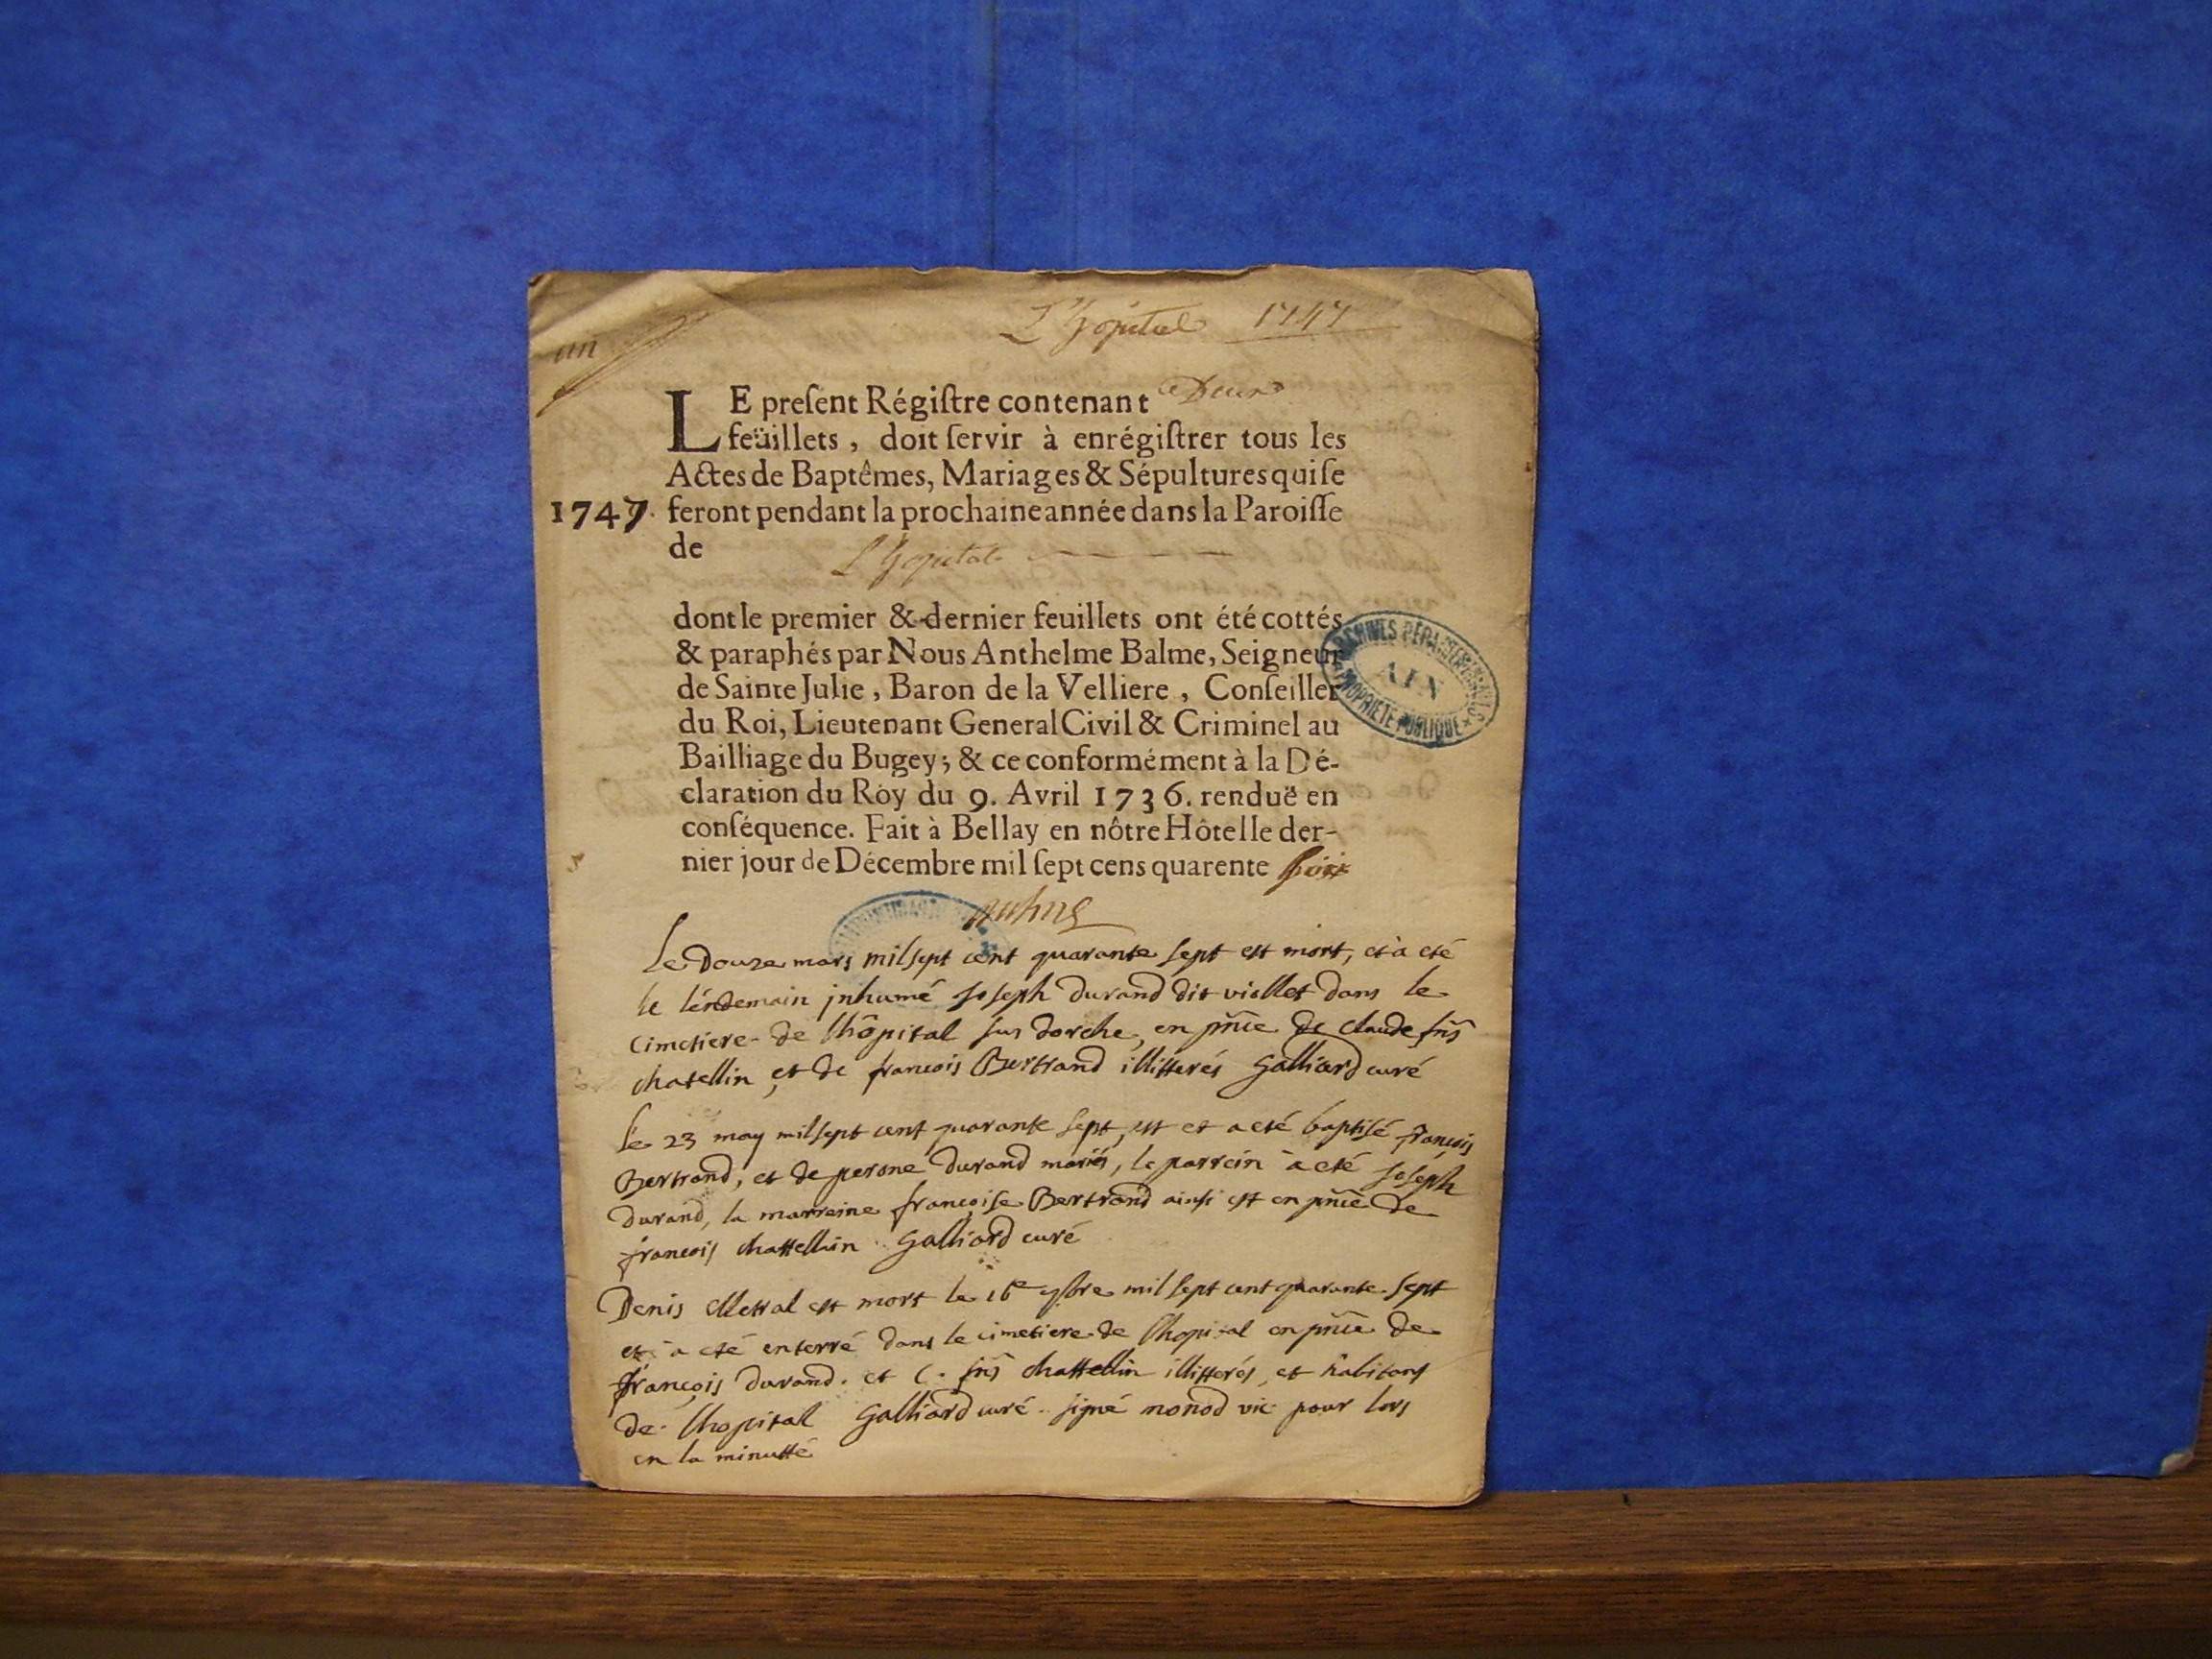 un
L'hôpital 1747
LE preſent Régiſtre contenant Deux
feüillets, doit ſervir à enrégiſtrer tous les
Actes de Baptêmes, Mariages & Sépultures qui ſe
1747. feront pendant la prochaine année dans la Paroiſſe
de L'hopital
dont le premier & dernier feuillets ont été cottés
& paraphés par Nous Anthelme Balme, Seigneur
de Sainte Julie, Baron de la Velliere, Conſeiller
du Roi, Lieutenant General Civil & Criminel au
Bailliage du Bugey; & ce conformément à la Dé-
claration du Roy du 9. Avril 1736. renduë en
conſéquence. Fait à Bellay en nôtre Hôtel le der-
nier jour de Décembre mil ſept cens quarente Six
ARCHIVES DÉPARTEMENTALES
AIN
PROPRIÉTÉ PUBLIQUE
Le Douze mars mil sept cent quarante sept est mort, et à eté
le lendemain jnhumé Joseph Durand dit viollet dans le
cimetiere de lhôpital sus dorche, en pñce de claude frñs
chatellin, et de francois Bertrand illitterés Galliard curé
Le 23 may mil sept cent quarante sept, est et a eté baptisé françois
Bertrand, et de perone durand mariés, le parrein à eté Joseph
durand, la marreine françoise Bertrand ainsi est en pñce de
francois chattellin Galliard curé
Denis Metral est mort le 16e 9bre mil sept cent quarante sept
et à eté enterré dans le cimetiere de lhopital en pñce de
françois durand. et C. frñs chattellin illitterés, et habitans
de lhopital Galliard curé signé monod vic pour lors
en la minutte